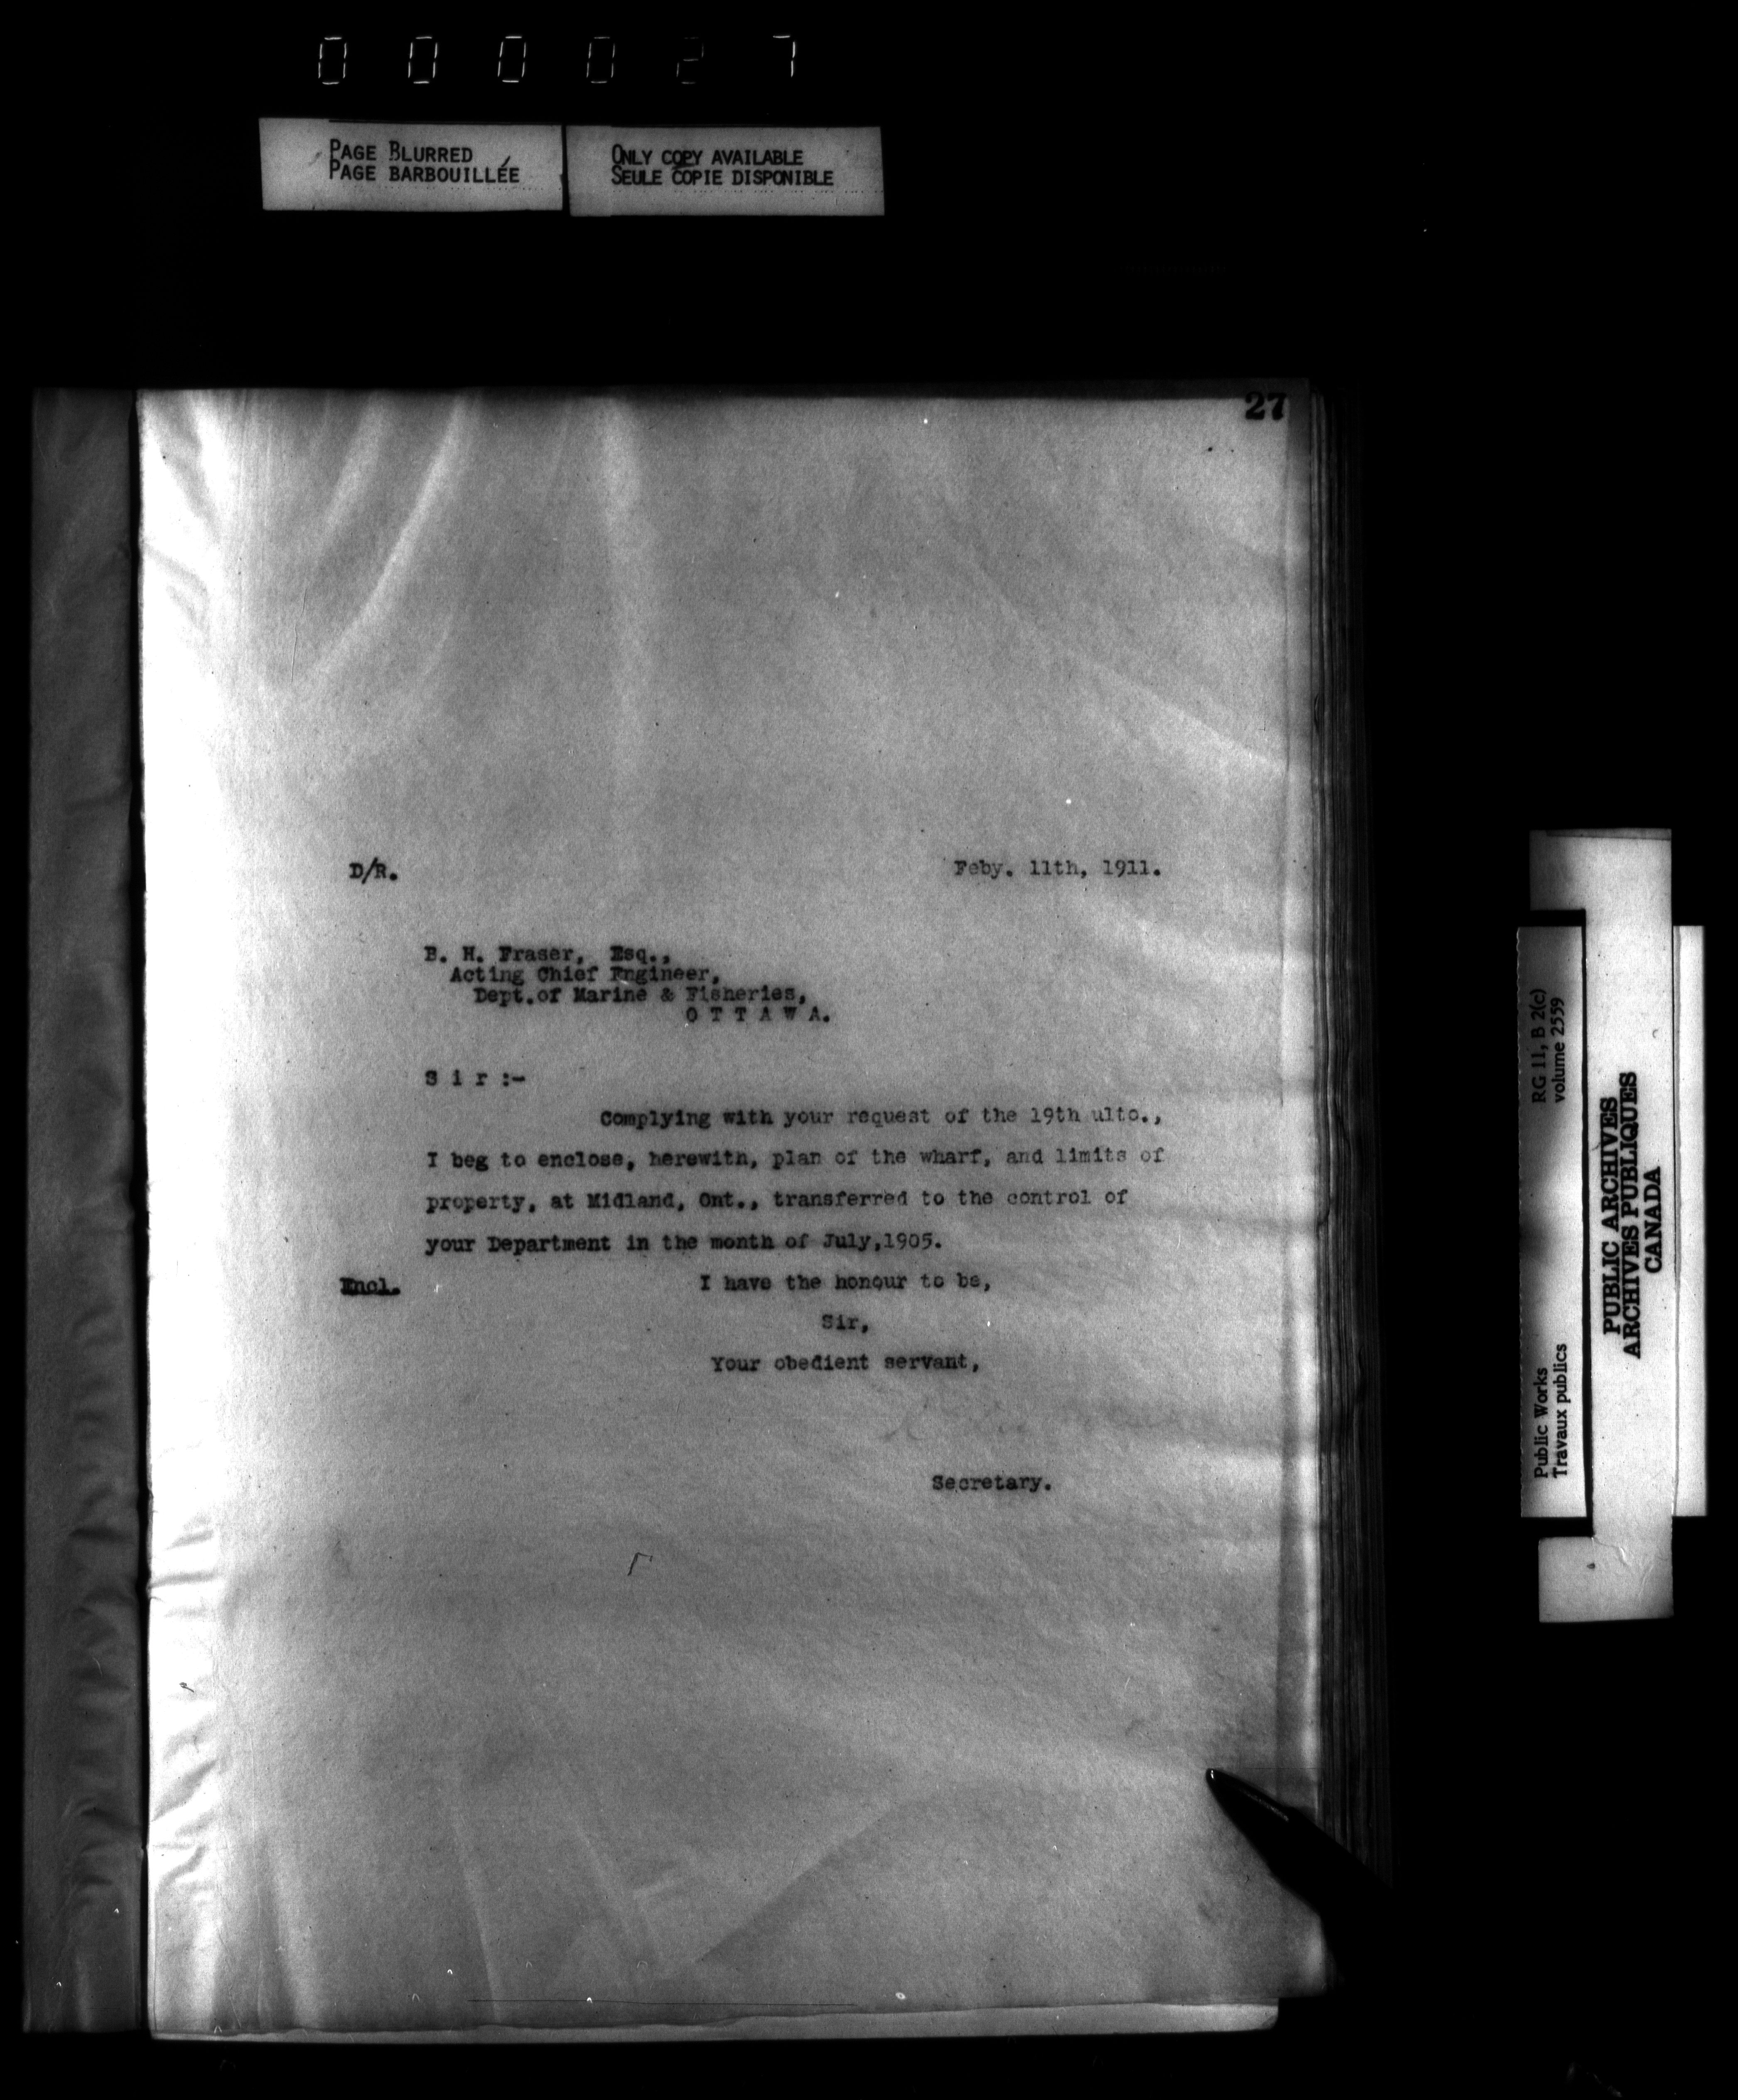 000027
PAGE BLURRED
PAGE BARBOUILLÉE
ONLY COPY AVAILABLE
SEULE COPIE DISPONIBLE
27
D/R.
Feby. 11th, 1911.
B. H. Fraser, Esq.,
Acting Chief Engineer,
Dept.of Marine & Fisheries,
O T T A W A.
S i r :-
Complying with your request of the 19th ulto.,
I beg to enclose, herewith, plan of the wharf, and limits of
property, at Midland, Ont., transferred to the control of
your Department in the month of July,1905.
Encl.
I have the honour to be,
Sir,
Your obedient servant,
Secretary.
RG 11, B 2(c)
volume 2559
Public Works
Travaux publics
PUBLIC ARCHIVES
ARCHIVES PUBLIQUES
CANADA